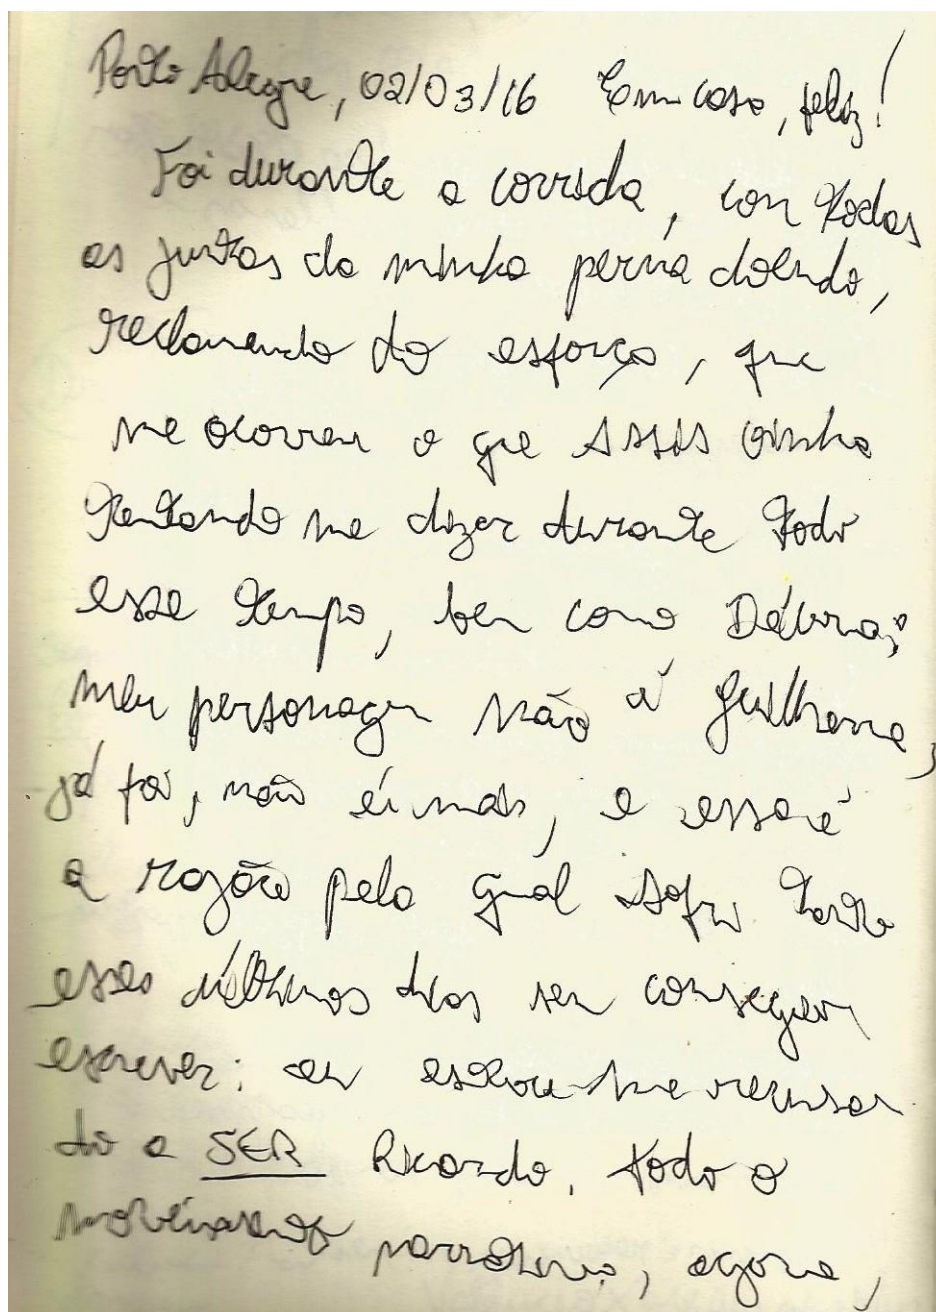 Porto Alegre, 02/03/16 Em casa, feliz!
Foi durante a corrida, com todas
as juntas da minha perna doendo,
reclamando do esforço, que
me ocorreu o que Assis vinha
tentando me dizer durante todo
esse tempo, bem como Débora:
meu personagem não é Guilherme,
já foi, não é mais, e essa é
a razão pela qual sofri tanto
esses últimos dias sem conseguir
escrever: eu estou me recusan
do a SER Ricardo. Todo o
movimento narrativo, agora,